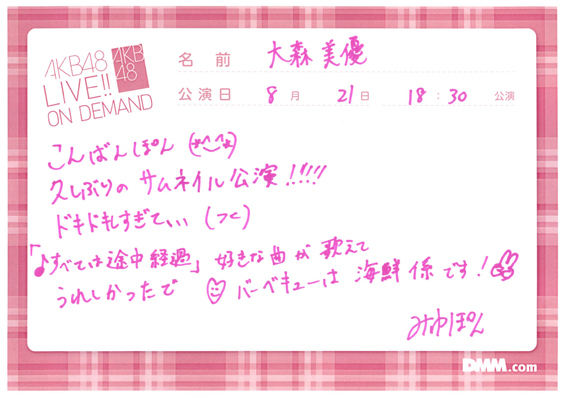 AKB48
LIVE!!
ON DEMAND
AKB
48
名前 大森美優
公演日 8月 21日 18:30 公演
こんばんぽん (*^^*)
久しぶりの サムネイル公演!!!!!
ドキドキしすぎてぃぃ (つ<)
「♪すべては途中経過」 好きな曲が 歌えて
うれしかったで ♡ バーベキューは 海鮮係です!
みゆぽん
DMM.com